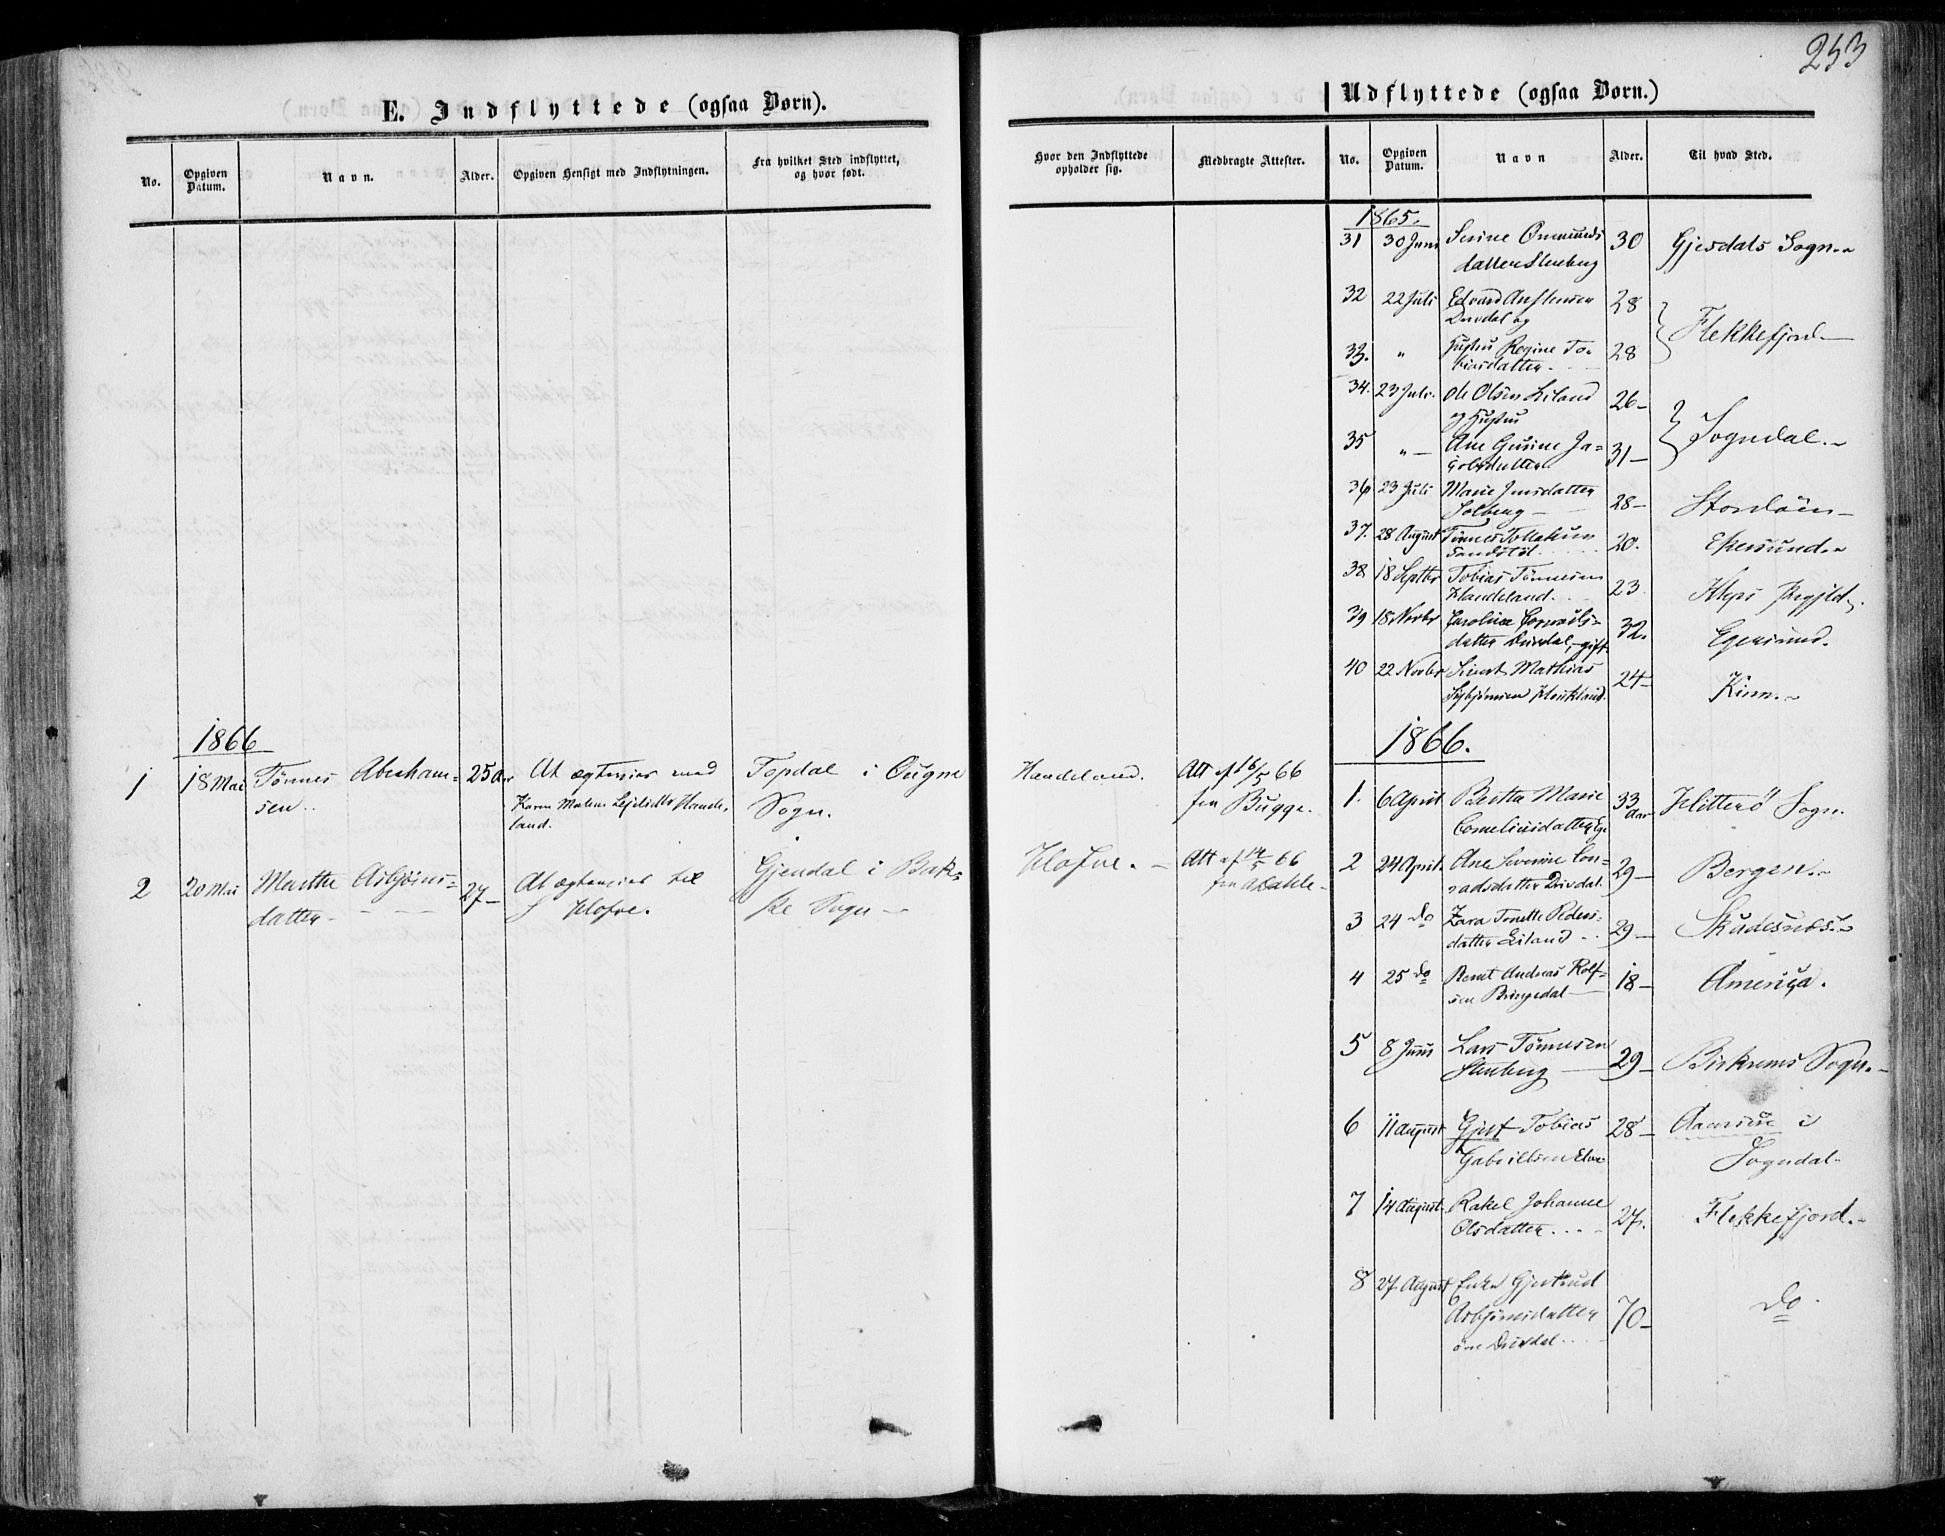 253
E. Indflyttede (ogsaa Børn).
No.
Opgiven Datum.
Navn.
Alder.
Opgiven Hensigt med Indflytningen.
Fra hvilket Sted indflyttet, og hvor født.
1866
1 18 Mai Tønnes Abraham= 25 Aar At ægtevies med Topdal i Ougne
sen. Karen Malene Hande-
land. Sogn.
2 20 Mai Marthe Asbjörns= 27 At ægtevies til Gjendal i Bak=
datter Klofve. ke Sogn
Hvor den Indflyttede opholder sig.
Medbragte Attester.
Handeland. Att af 16/5 66
fra Bugge.
Klofve. Att af 14/5 66
fra
Udflyttede (ogsaa Børn.)
No.
Opgiven Datum.
Navn
Alder.
Til hvad Sted.
1865.
31 30 Juni Serine Ommunds 30 Gjesdals Sogn.
datter Stenberg
32 22 Juli Edvard Austensen 28 Flekkefjord
Drivdal og
33. " Hustru Regine To- 28
biasdatter
34. 23 Juli Ole Olsen Eiland 26 Sogndal.
og Hustru
35 " Ane Gurine Ja= 31
kobsdatter
36 23 Juli Marie Jensdatter 28 Stordöen
Solberg
37. 28 August Tönnes Tollaksen 20. Ekersund.
Sandstöl
38 18 Septbr Tobias Tönnesen 23
Handeland.
39 18 Novbr Caroline Cornelis= 32. Egersund.
datter Drivdal, gift
40 22 Novbr Sivert Mathias 24 Kinn.
Haukland.
1866.
1. 6 April Bertha Marie 33 Aar Hitterö Sogn.
Corneliusdatter Ege
2 24 April Ane Severine Con= 29 Bergen.
radsdatter Drivdal.
3 24 do Zara Tonette Peders= 29 Skudesnes.
datter Eiland
4 25 do Bernt Andreas Rolf= 18 America.
sen Bringedal
5 8 Juni Lars Tönnesen 29 Birkrems Sogn.
Stenberg
6 11 August Gjert Tobias 28 i
Gabrielsen Elve Sogndal.
7 14 August Rakel Johanne 27. Flekkefjord.
Olsdatter
8 27 August Enke Gjertrud do
Asbjörnsdatter 70
Drivdal